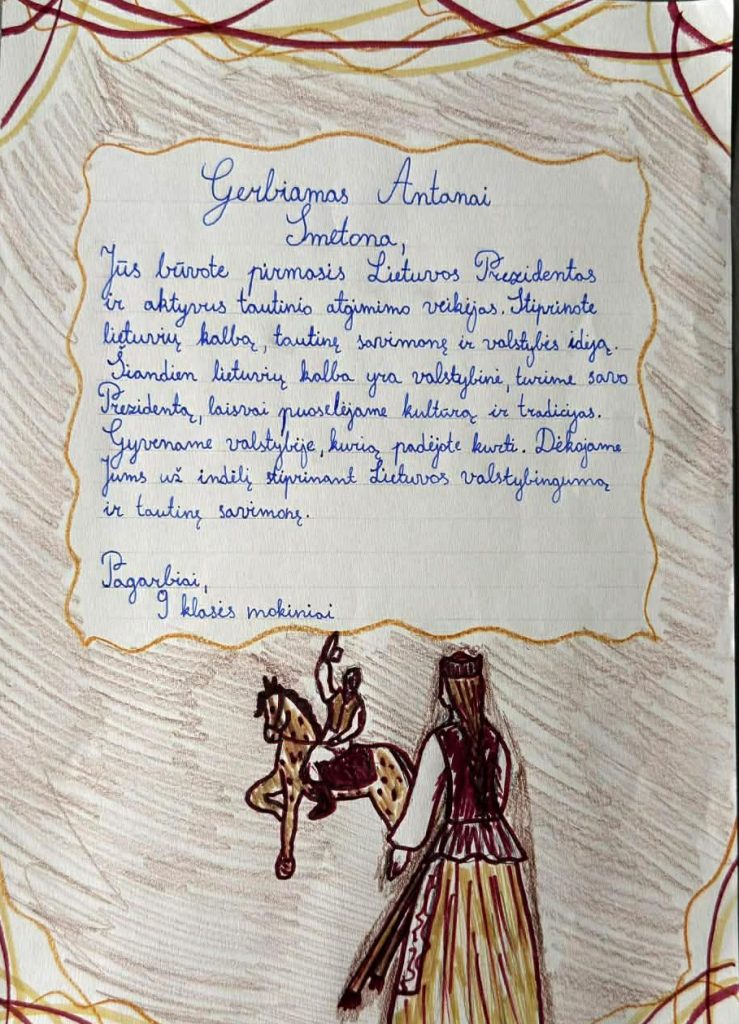 Gerbiamas Antanai
Smetona,
Jūs būvote pirmasis Lietuvos Prezidentas
ir aktyvus tautinio atgimimo veikėjas. Stiprinote
lietuvių kalbą, tautinę savimonę ir valstybės idėją.
Šiandien lietuvių kalba yra valstybinė, turime savo
Prezidentą, laisvai puoselėjame kultūrą ir tradicijas.
Gyvename valstybėje, kurią padėjote kurti. Dėkojame
Jums už indėlį stiprinant Lietuvos valstybingumą
ir tautinę savimonę.
Pagarbiai,
9 klasės mokiniai